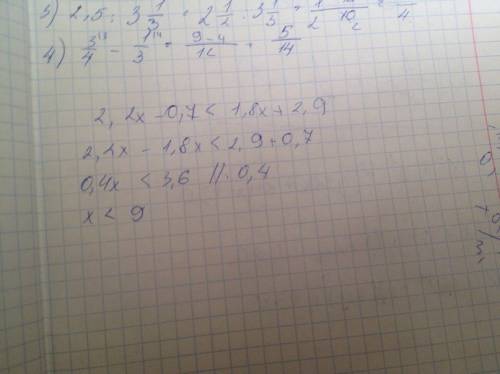 3) 2,5 : 3 1/3 = 2 1/2 : 3 1/3 =
4) 3/4 - 1/3 = 9-4/12 = 5/14
2,2x-0,7 < 1,8x+2,9
2,2x - 1,8x < 2,9+0,7
0,4x < 3,6 || : 0,4
x < 9